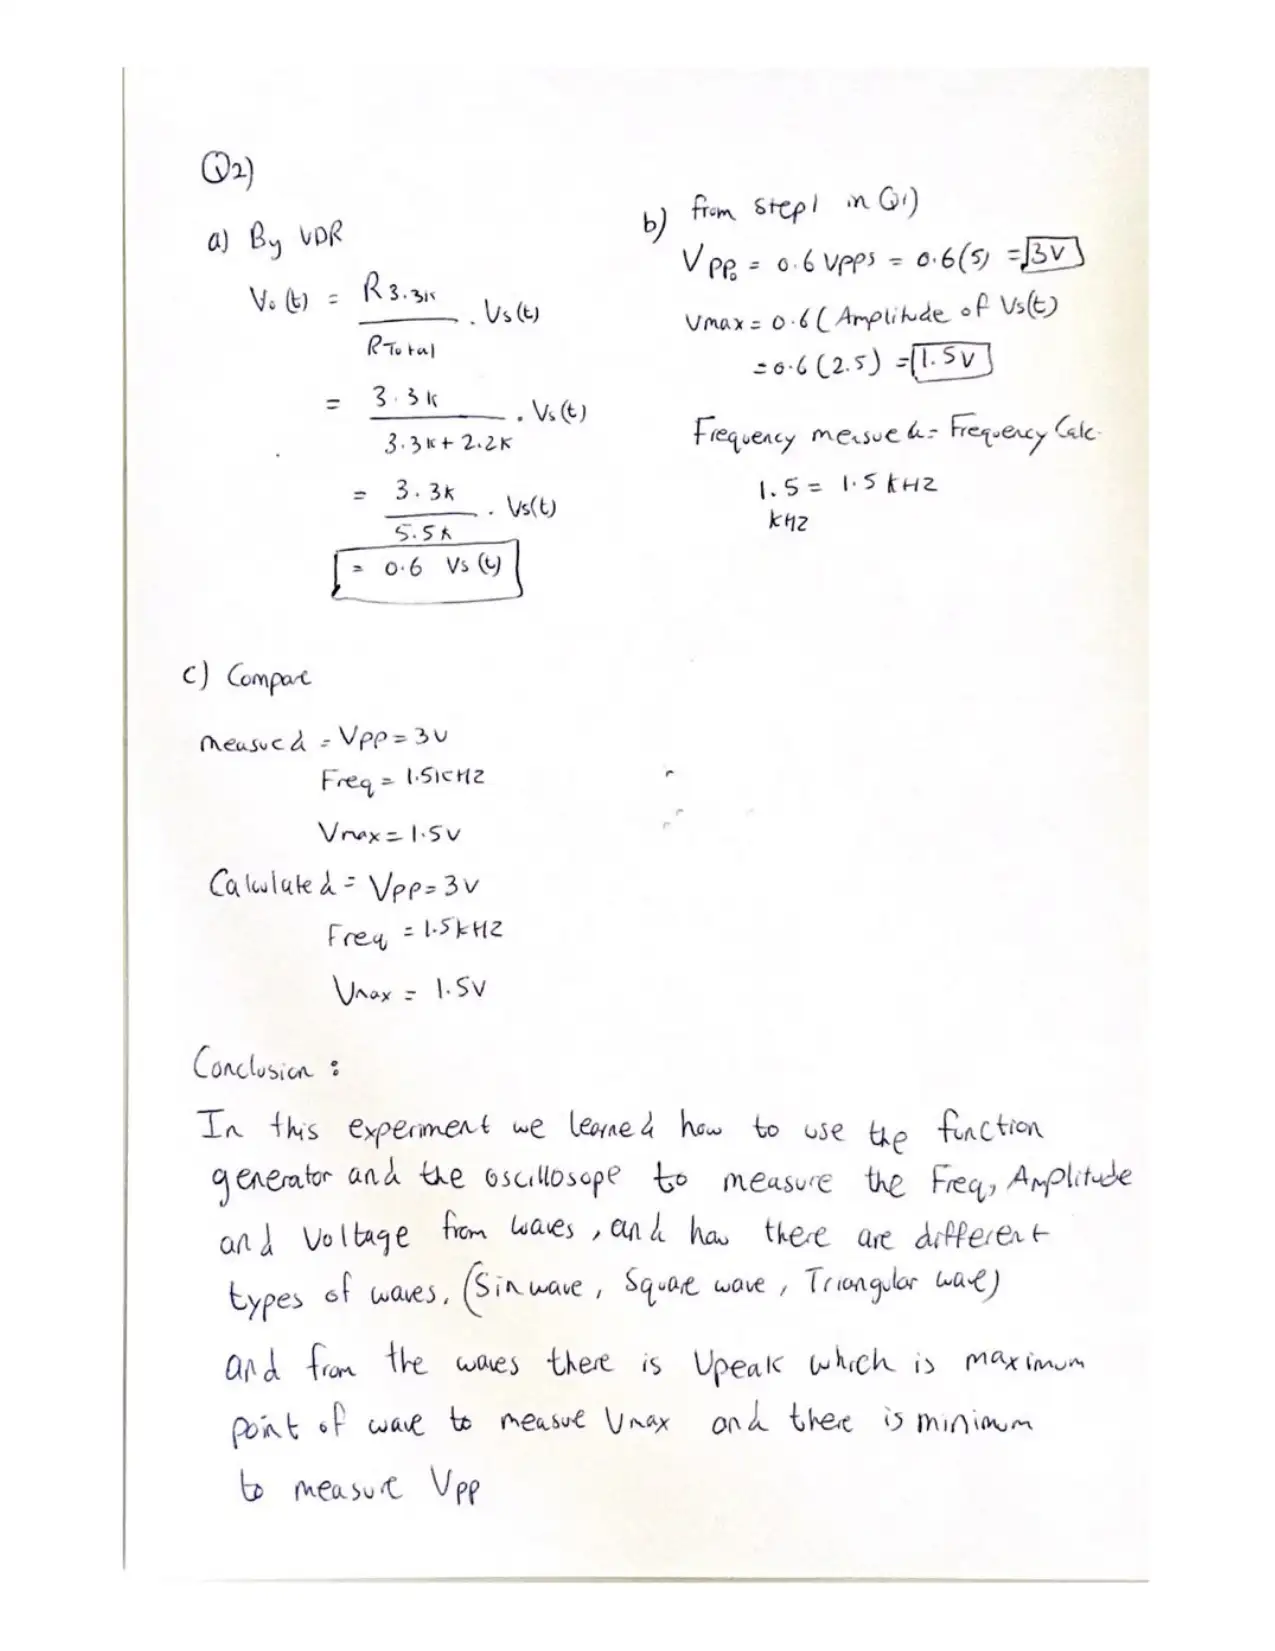 Q2)
a) By VDR
Vo (t) = R3.3k / RTotal . Vs(t)
= 3.3k / 3.3k + 2.2k . Vs(t)
= 3.3k / 5.5k . Vs(t)
= 0.6 Vs (t)
b) from Step1 in Q1)
VPPo = 0.6 VPPS = 0.6(5) = 3V
Vmax = 0.6 ( Amplitude of Vs(t)
= 0.6 (2.5) = 1.5V
Frequency mesued = Frequency Calc.
1.5 = 1.5 kHZ
kHZ
c) Compare
measued = VPP = 3V
Freq = 1.5kHZ
Vmax = 1.5V
Calculated = VPP = 3V
Freq = 1.5kHZ
Vmax = 1.5V
Conclusion :
In this experiment we learned how to use the function
generator and the oscillosope to measure the Freq, Amplitude
and Voltage from waves , and how there are different
types of waves, (Sin wave , Square wave , Triangular wave)
and from the waves there is Vpeak which is maximum
point of wave to measure Vmax and there is minimum
to measure VPP